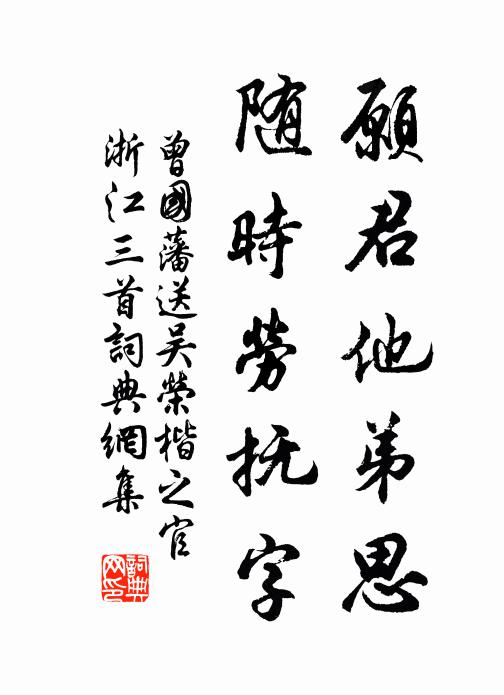 願君他弟思
随時勞抚字
曾國藩送吴榮楷之官
浙江三首詞典網集
詞典网印